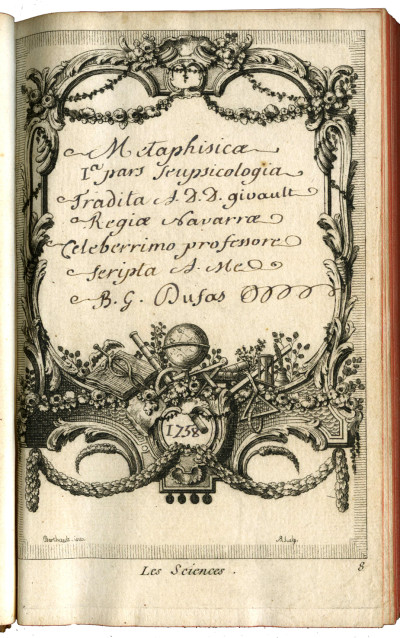 Metaphisicæ
Iª pars seupsicologia
Tradita A D.D. givault
Regiæ Navarræ
Celeberrimo professore
scripta A Me
B. G. Dufas
1758
Les Sciences.
8